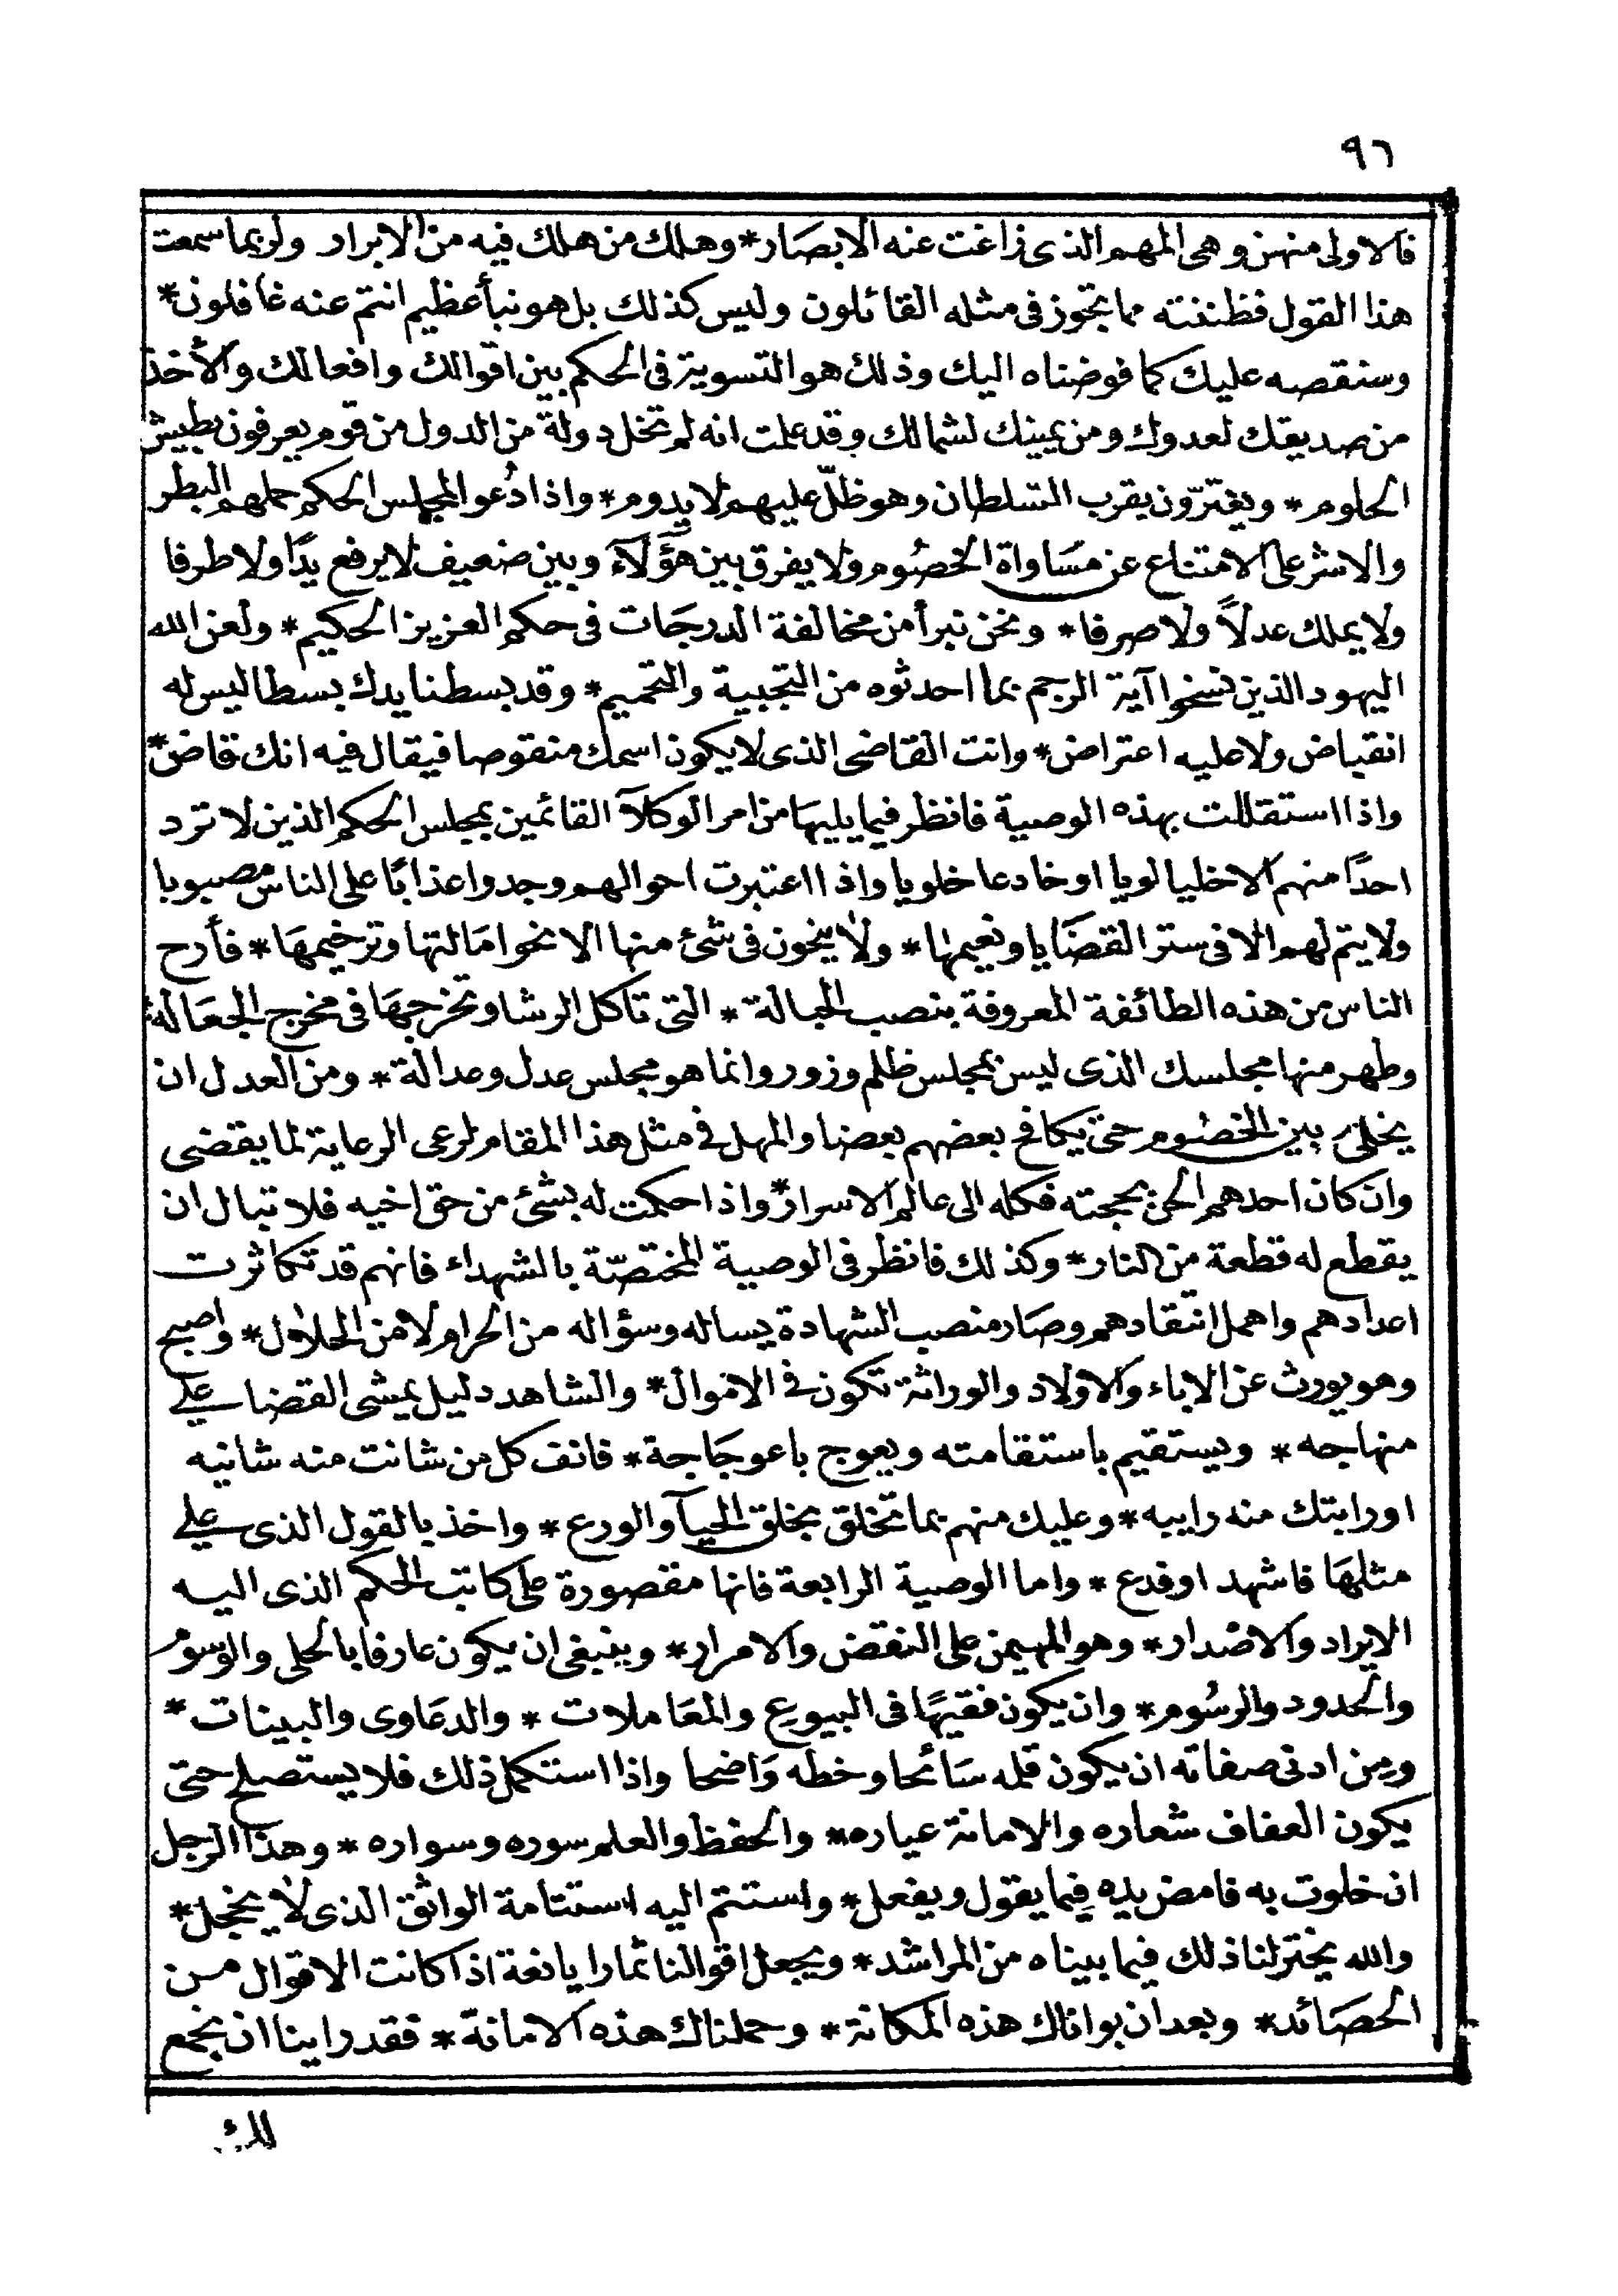 ٩٦
فالاولى منهن وهى المهم الذى زاغت عنه الابصار * وهلك من هلك فيه من الابرار ولربما سمعت
هذا القول فظننته مما يتجوز فى مثله القائلون وليس كذلك بل هو نبأ عظيم انتم عنه غافلون *
وسنقصه عليك كما فوضناه اليك وذلك هو التسوية فى الحكم بين اقوالك وافعالك والأخذ
من صديقك لعدوك ومن يمينك لشمالك وقد علمت انه لم تخل دولة من الدول من قوم يعرفون بطيش
الحلوم * ويغترّون بقرب السلطان وهو ظلّ عليهم لا يدوم * واذا دُعوا لمجلس الحكم حملهم البطر
والاشر على الامتناع عن مسَاواة الخصُوم ولا يفرق بين هؤلآء وبين ضعيف لا يرفع يدًا ولا طرفا
ولا يملك عدلاً ولا صرفا * ونحن نبرأ من مخالفة الدرجَات فى حكم العزيز الحكيم * ولعن الله
اليهود الذين نسخوا آية الرجم بما احدثوه من التجبية والتحميم * وقد بسطنا يدك بسطا ليس له
انقباض ولا عليه اعتراض * وانت القاضى الذى لا يكون اسمك منقوصا فيقال فيه انك قاض *
واذا استقللت بهذه الوصية فانظر فيما يليهَا من امر الوكلآ القائمين بمجلس الحكم الذين لا ترد
احدًا منهم الا خليا لويا او خادعا خلوبا واذا اعتبرت احوالهم وجدوا عذابًا على الناس مصبوبا
ولا يتم لهم الا فى ستر القضَايا وتعيمها * ولا ينحون فى شئ منها الا نحو امَالتها وترخيمهَا * فأرح
الناس من هذه الطائفة المعروفة بنصب الحبالة * التى تاكل الرشا وتخرجهَا فى مخرج الجعَالة
وطهر منها مجلسك الذى ليس بمجلس ظلم وزور وانما هو مجلس عدل وعدالة * ومن العدل ان
يخلى بين الخصُوم حتى يكافح بعضهم بعضا والمهل فى مثل هذا المقام لرعى الرعاية لما يقضى
وان كان احدهم الحن بحجته فكله الى عالم الاسرار * واذا حكمت له بشئ من حق اخيه فلا تبال ان
يقطع له قطعة من النار * وكذلك فانظر فى الوصية المختصّة بالشهداء فانهم قد تكاثرت
اعدادهم واهمل انتقادهم وصَار منصب الشهادة يساله وسؤاله من الحرام لا من الحلال * واصبح
وهو يورث عن الاباء والاولاد والوراثة تكون فى الاموال * والشاهد دليل يمشى القضا على
منهاجه * ويستقيم باستقامته ويعوج باعوجَاجة * فانف كل من شانت منه شانيه
او رابتك منه رايبه * وعليك منهم بما تخلق بخلق الحيآ والورع * واخذ بالقول الذى على
مثلهَا فاشهد او فدع * واما الوصية الرابعة فانها مقصورة على كاتب الحكم الذى اليه
الايراد والاصْدار * وهو المهيمن على النقض والامرار * وينبغى ان يكون عارفا بالحلى والوسوم
والحدود والرسُوم * وان يكون فقيهًا فى البيوع والمعَاملات * والدعَاوى والبينات *
ومِن ادنى صفاته ان يكون قلمه سَائحا وخطه وَاضحا واذا استكمل ذلك فلا يستصلح حتى
يكون العفاف شعاره والامانة عياره * والحفظ والعلم سوره وسواره * وهذا الرجل
ان خلوت به فامض يده فِيما يقول ويفعل * واستنم اليه استنامة الواثق الذى لا يخجل *
والله يختر لنا ذلك فيما بيناه من المراشد * ويجعل اقوالنا ثمارا يانعة اذا كانت الاقوال من
الحصَائد * وبعد ان بواناك هذه المكانة * وحملناك هذه الامانة * فقد راينا ان نجمع
لك